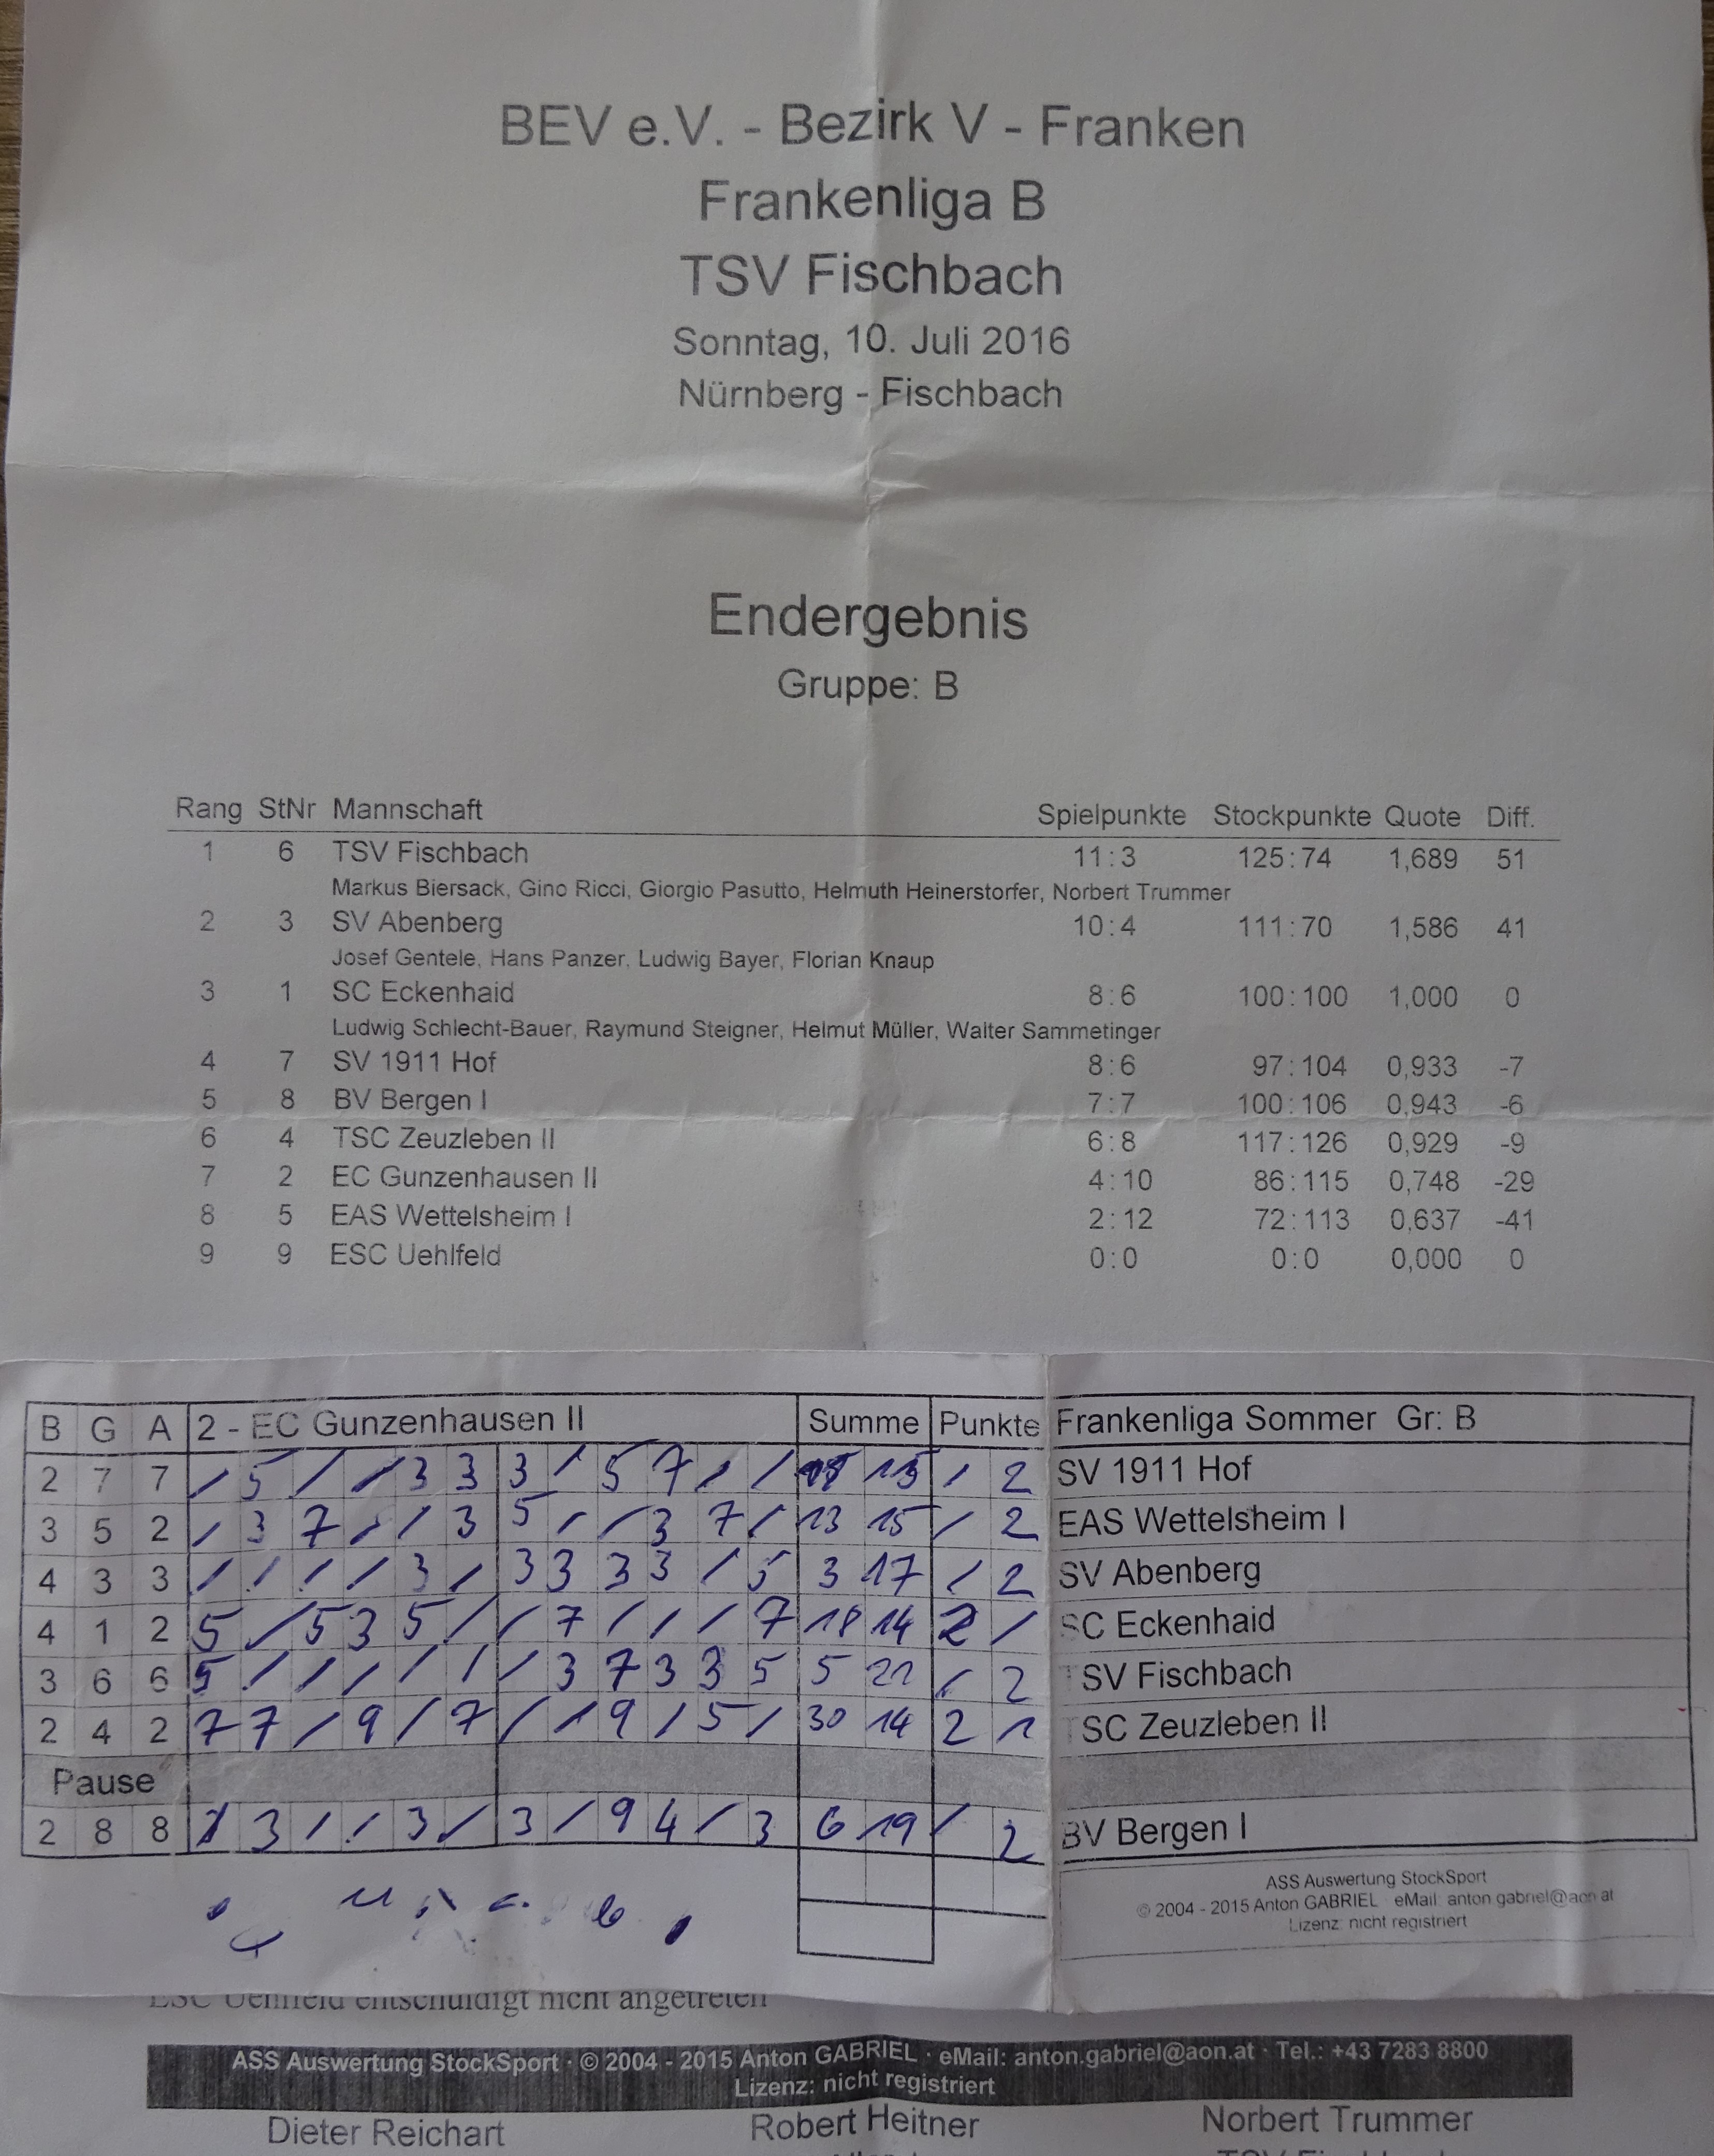 BEV e.V. - Bezirk V - Franken
Frankenliga B
TSV Fischbach
Sonntag, 10. Juli 2016
Nürnberg - Fischbach
Endergebnis
Gruppe: B
Rang StNr Mannschaft Spielpunkte Stockpunkte Quote Diff.
1 6 TSV Fischbach 11:3 125:74 1,689 51
Markus Biersack, Gino Ricci, Giorgio Pasutto, Helmuth Heinerstorfer, Norbert Trummer
2 3 SV Abenberg 10:4 111:70 1,586 41
Josef Gentele, Hans Panzer, Ludwig Bayer, Florian Knaup
3 1 SC Eckenhaid 8:6 100:100 1,000 0
Ludwig Schlecht-Bauer, Raymund Steigner, Helmut Müller, Walter Sammetinger
4 7 SV 1911 Hof 8:6 97:104 0,933 -7
5 8 BV Bergen I 7:7 100:106 0,943 -6
6 4 TSC Zeuzleben II 6:8 117:126 0,929 -9
7 2 EC Gunzenhausen II 4:10 86:115 0,748 -29
8 5 EAS Wettelsheim I 2:12 72:113 0,637 -41
9 9 ESC Uehlfeld 0:0 0:0 0,000 0
B G A 2 - EC Gunzenhausen II Summe Punkte Frankenliga Sommer Gr: B
2 7 7 / 5 / / 3 3 3 / 5 7 / / 15 / 2 SV 1911 Hof
3 5 2 / 3 7 / / 3 5 / / 3 7 / 13 15 / 2 EAS Wettelsheim I
4 3 3 / / / / 3 / 3 3 3 3 / 5 3 17 / 2 SV Abenberg
4 1 2 5 / 5 3 5 / / 7 / / / 7 18 14 2 / SC Eckenhaid
3 6 6 5 / / / / / / 3 7 3 3 5 5 21 / 2 TSV Fischbach
2 4 2 7 7 / 9 / 7 / / 9 / 5 / 30 14 2 / TSC Zeuzleben II
Pause
2 8 8 / 3 / / 3 / 3 / 9 4 / 3 6 19 / 2 BV Bergen I
ASS Auswertung StockSport
© 2004 - 2015 Anton GABRIEL eMail: anton.gabriel@aon.at
Lizenz: nicht registriert
ESC Uehlfeld entschuldigt nicht angetreten
ASS Auswertung StockSport · © 2004 - 2015 Anton GABRIEL · eMail: anton.gabriel@aon.at · Tel.: +43 7283 8800
Lizenz: nicht registriert
Dieter Reichart Robert Heitner Norbert Trummer